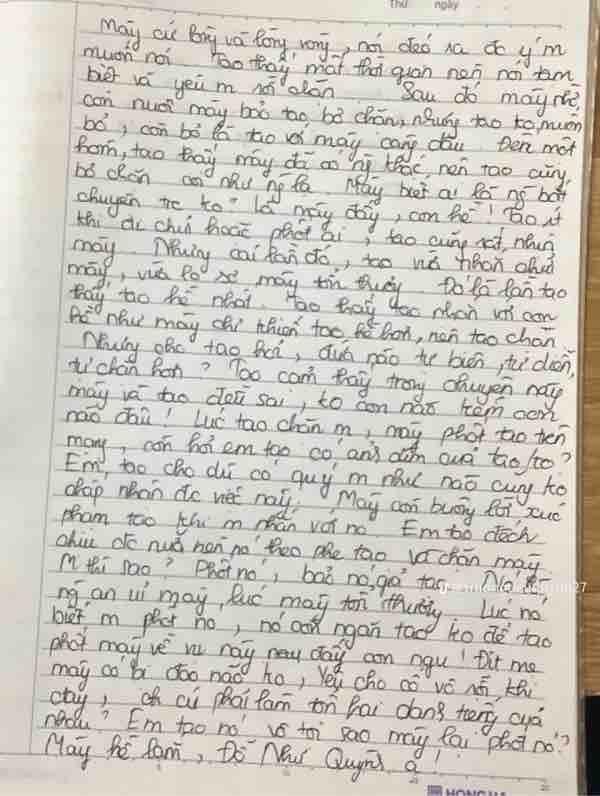 Thứ ngày
Mày cứ lòng và lòng vòng, nói đéo ra đc ý m
muốn nói Tao thấy mất thời gian nên nói tạm
biệt và yêu m rồi đoạn Sau đó mày nhờ,
con nuôi mày bảo tao bỏ chặn, nhưng tao ko muốn
bỏ, còn bỏ là tao với mày căng đầu Đến một
hôm, tao thấy mày đã có ng khác, nên tao cũng
bỏ chặn coi như ng lạ. Mày biết ai là ng bắt
chuyện tr ko? Là mày đấy, con hề! Tao ít
khi đc chửi hoặc phốt ai, tao cũng rất nhịn
mày Nhưng cái lần đó, tao vừa nhắn chửi
mày, vừa lo sợ mày tổn thương Đó là lần tao
thấy tao hề nhất. Tao thấy tao nhắn với con
hề như mày chỉ khiến tao hề hơn, nên tao chặn
Nhưng cho tao hỏi, đứa nào tự biên, tự diễn,
tự chặn hơn? Tao cảm thấy trong chuyện này
mày và tao đều sai, ko con nào kém con
nào đâu! Lúc tao chặn m, mày phốt tao trên
mạng, còn hỏi em tao có ảnh dìm của tao ko?
Em tao cho dù có quý m như nào cũng ko
chấp nhận đc việc này. Mày còn buông lời xúc
phạm tao khi m nhắn với nó Em tao đéch
chịu đc nữa nên nó theo phe tao và chặn mày.
M thì sao? Phốt nó, bảo nó giả tạo. Nó là
ng an ủi mày, lúc mày tổn thương Lúc nó
biết m phốt nó, nó còn ngăn tao ko để tao
phốt mày về vụ này nay đấy con ngu! Địt mẹ
mày có bị đao não ko, yêu cho cố vô rồi khi
ctay, cứ phải làm tổn hại danh tiếng của
nhau? Em tao nó vô tội sao mày lại phốt nó?
Mày hề lắm, Đỗ Như Quỳnh ạ!
HONG HA